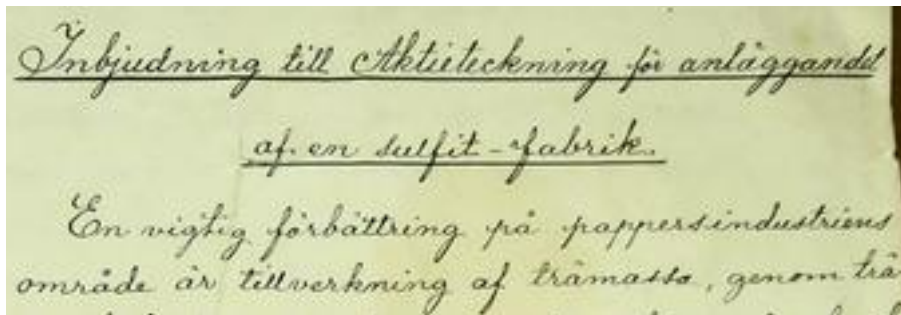 Inbjudning till Aktieteckning för anläggandet
af en sulfit-fabrik.
En vigtig förbättring på pappersindustriens
område är tillverkning af trämassa, genom trä